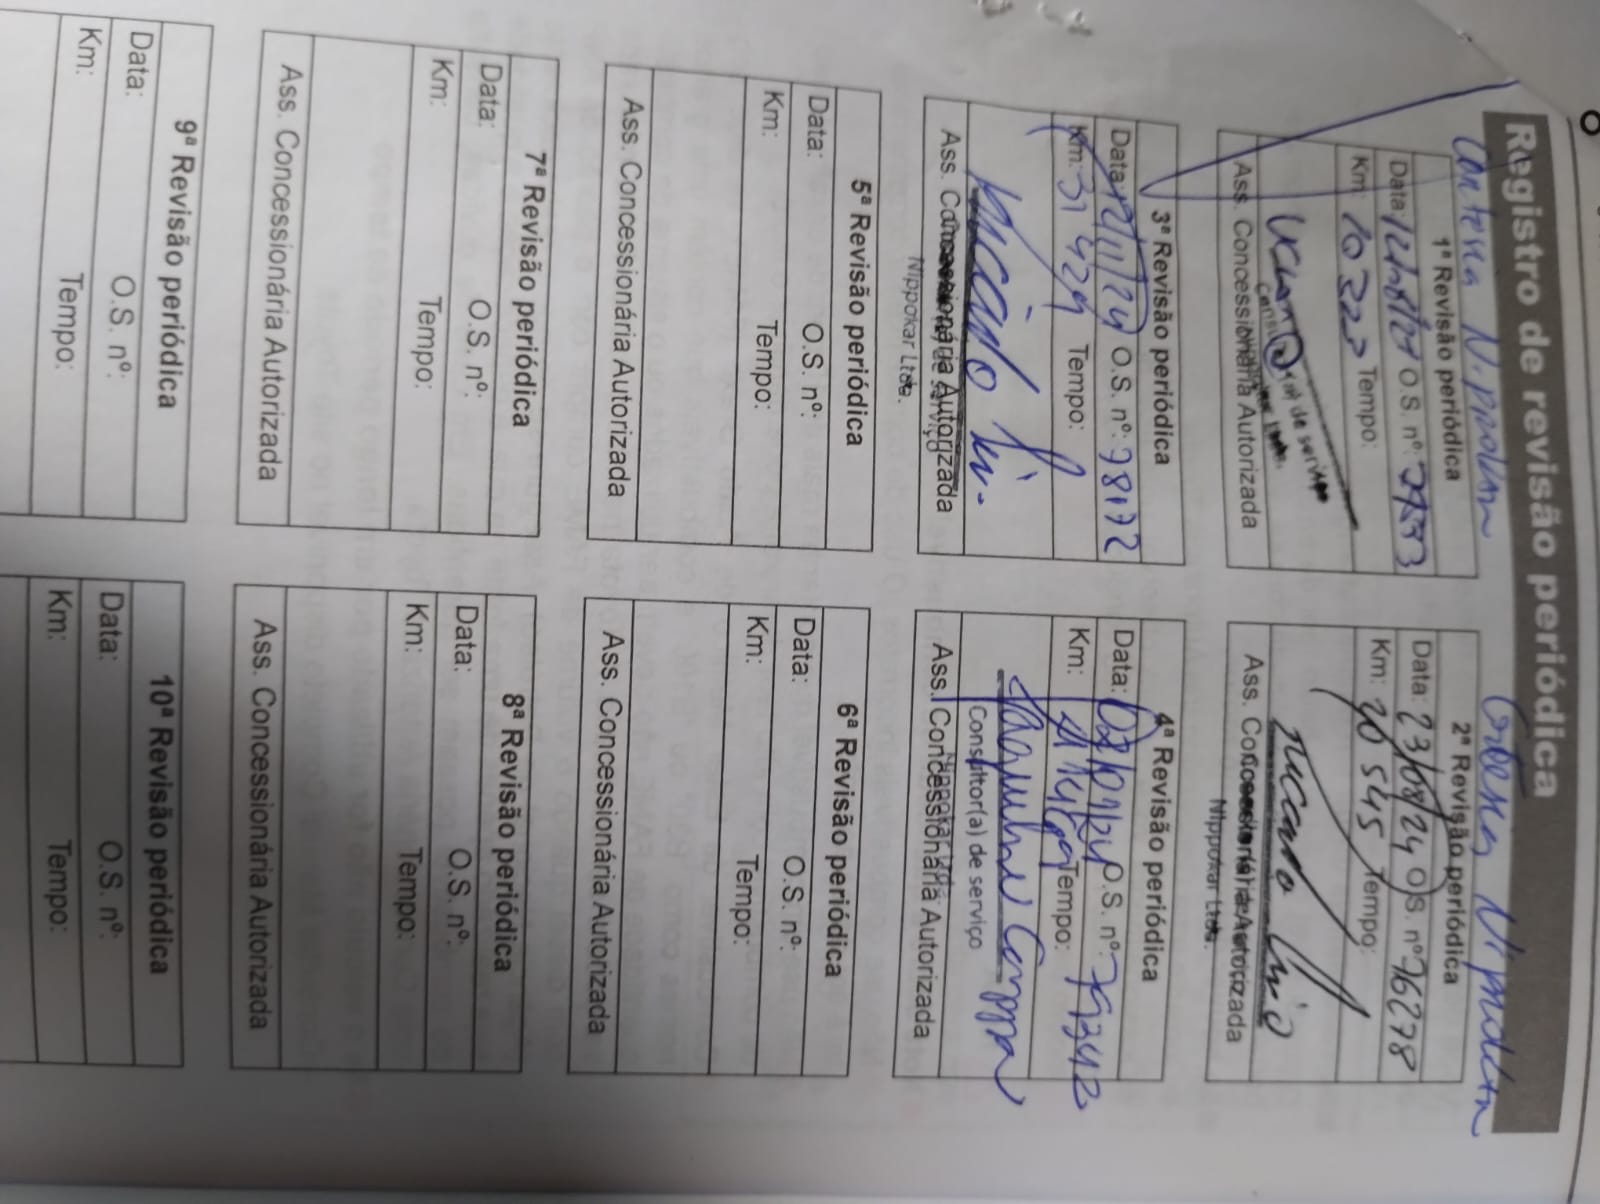 Registro de revisão periódica
1ª Revisão periódica
Data: O.S. nº:
Km: 10322 Tempo:
Ass. Concessionária Autorizada
2ª Revisão periódica
Data: 23/08/24 O.S. nº: 76278
Km: 20 545 Tempo:
Ass. Concessionária Autorizada
Nippokar Ltda.
3ª Revisão periódica
Data: 12/11/24 O.S. nº: 78172
Km: 31 429 Tempo:
Ass. Concessionária Autorizada
Nippokar Ltda.
4ª Revisão periódica
Data: O.S. nº: 79342
Km: Tempo:
Consultor(a) de serviço
Nippokar Ltda.
Ass. Concessionária Autorizada
5ª Revisão periódica
Data: O.S. nº:
Km: Tempo:
Ass. Concessionária Autorizada
6ª Revisão periódica
Data: O.S. nº:
Km: Tempo:
Ass. Concessionária Autorizada
7ª Revisão periódica
Data: O.S. nº:
Km: Tempo:
Ass. Concessionária Autorizada
8ª Revisão periódica
Data: O.S. nº:
Km: Tempo:
Ass. Concessionária Autorizada
9ª Revisão periódica
Data: O.S. nº:
Km: Tempo:
10ª Revisão periódica
Data: O.S. nº:
Km: Tempo: